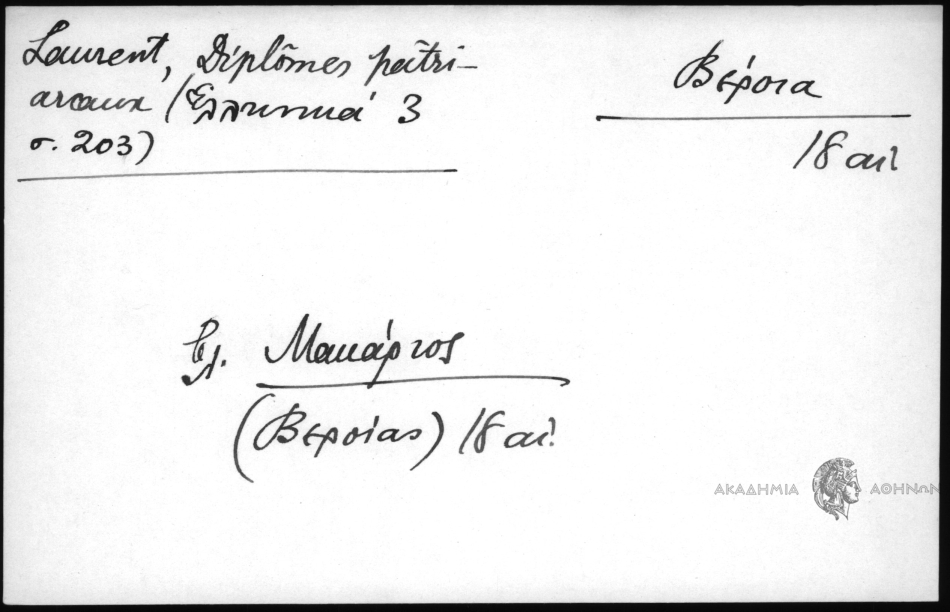 Laurent, Diplômes patri-
arcaux (Ελληνικά 3
σ. 203)
Βέροια
18 αι.
βλ. Μακάριος
(Βεροίας) 18 αι.
ΑΚΑΔΗΜΙΑ ΑΘΗΝΩΝ